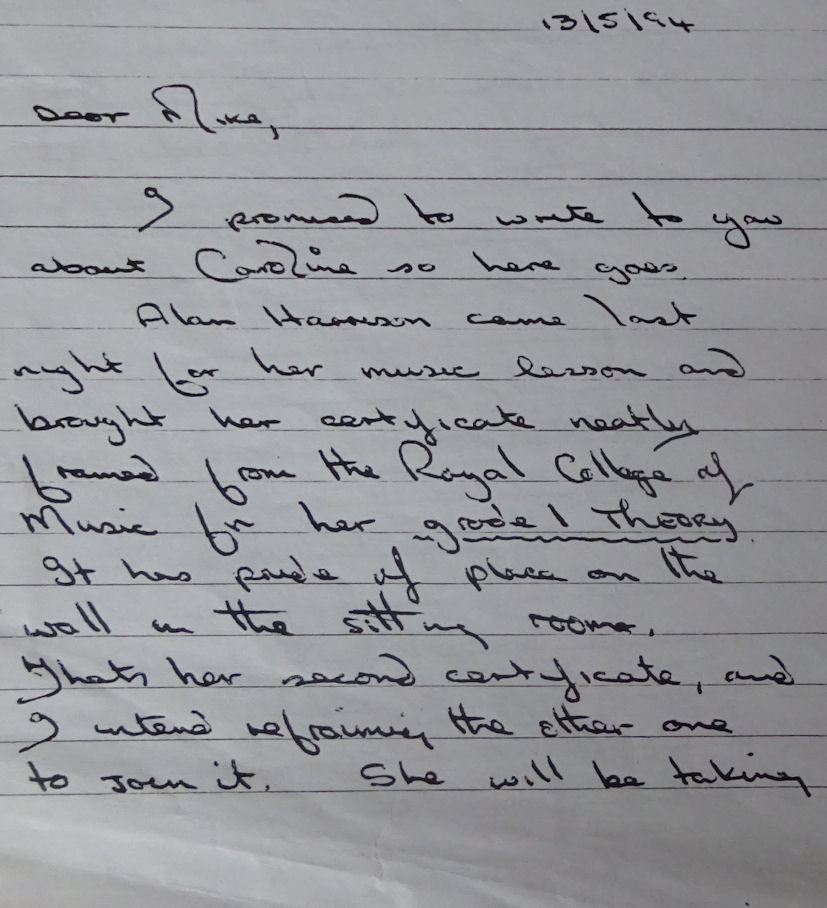 13/5/94
Dear Mike,
I promised to write to you
about Caroline so here goes.
Alan Harrison came last
night for her music lesson and
brought her certificate neatly
framed from the Royal College of
Music for her grade 1 Theory.
It has pride of place on the
wall in the sitting room.
Thats her second certificate, and
I intend reframing the other one
to join it. She will be taking